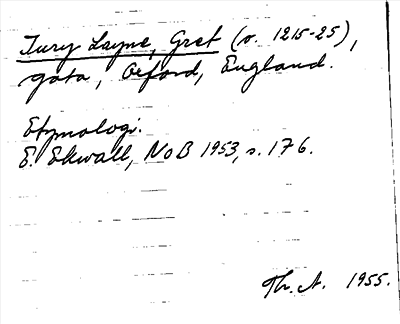 Jury Layne, Gret (o. 1215-25),
gata, Oxford, England.
Etymologi.
E. Ekwall, NoB 1953, s. 176.
Th. A. 1955.